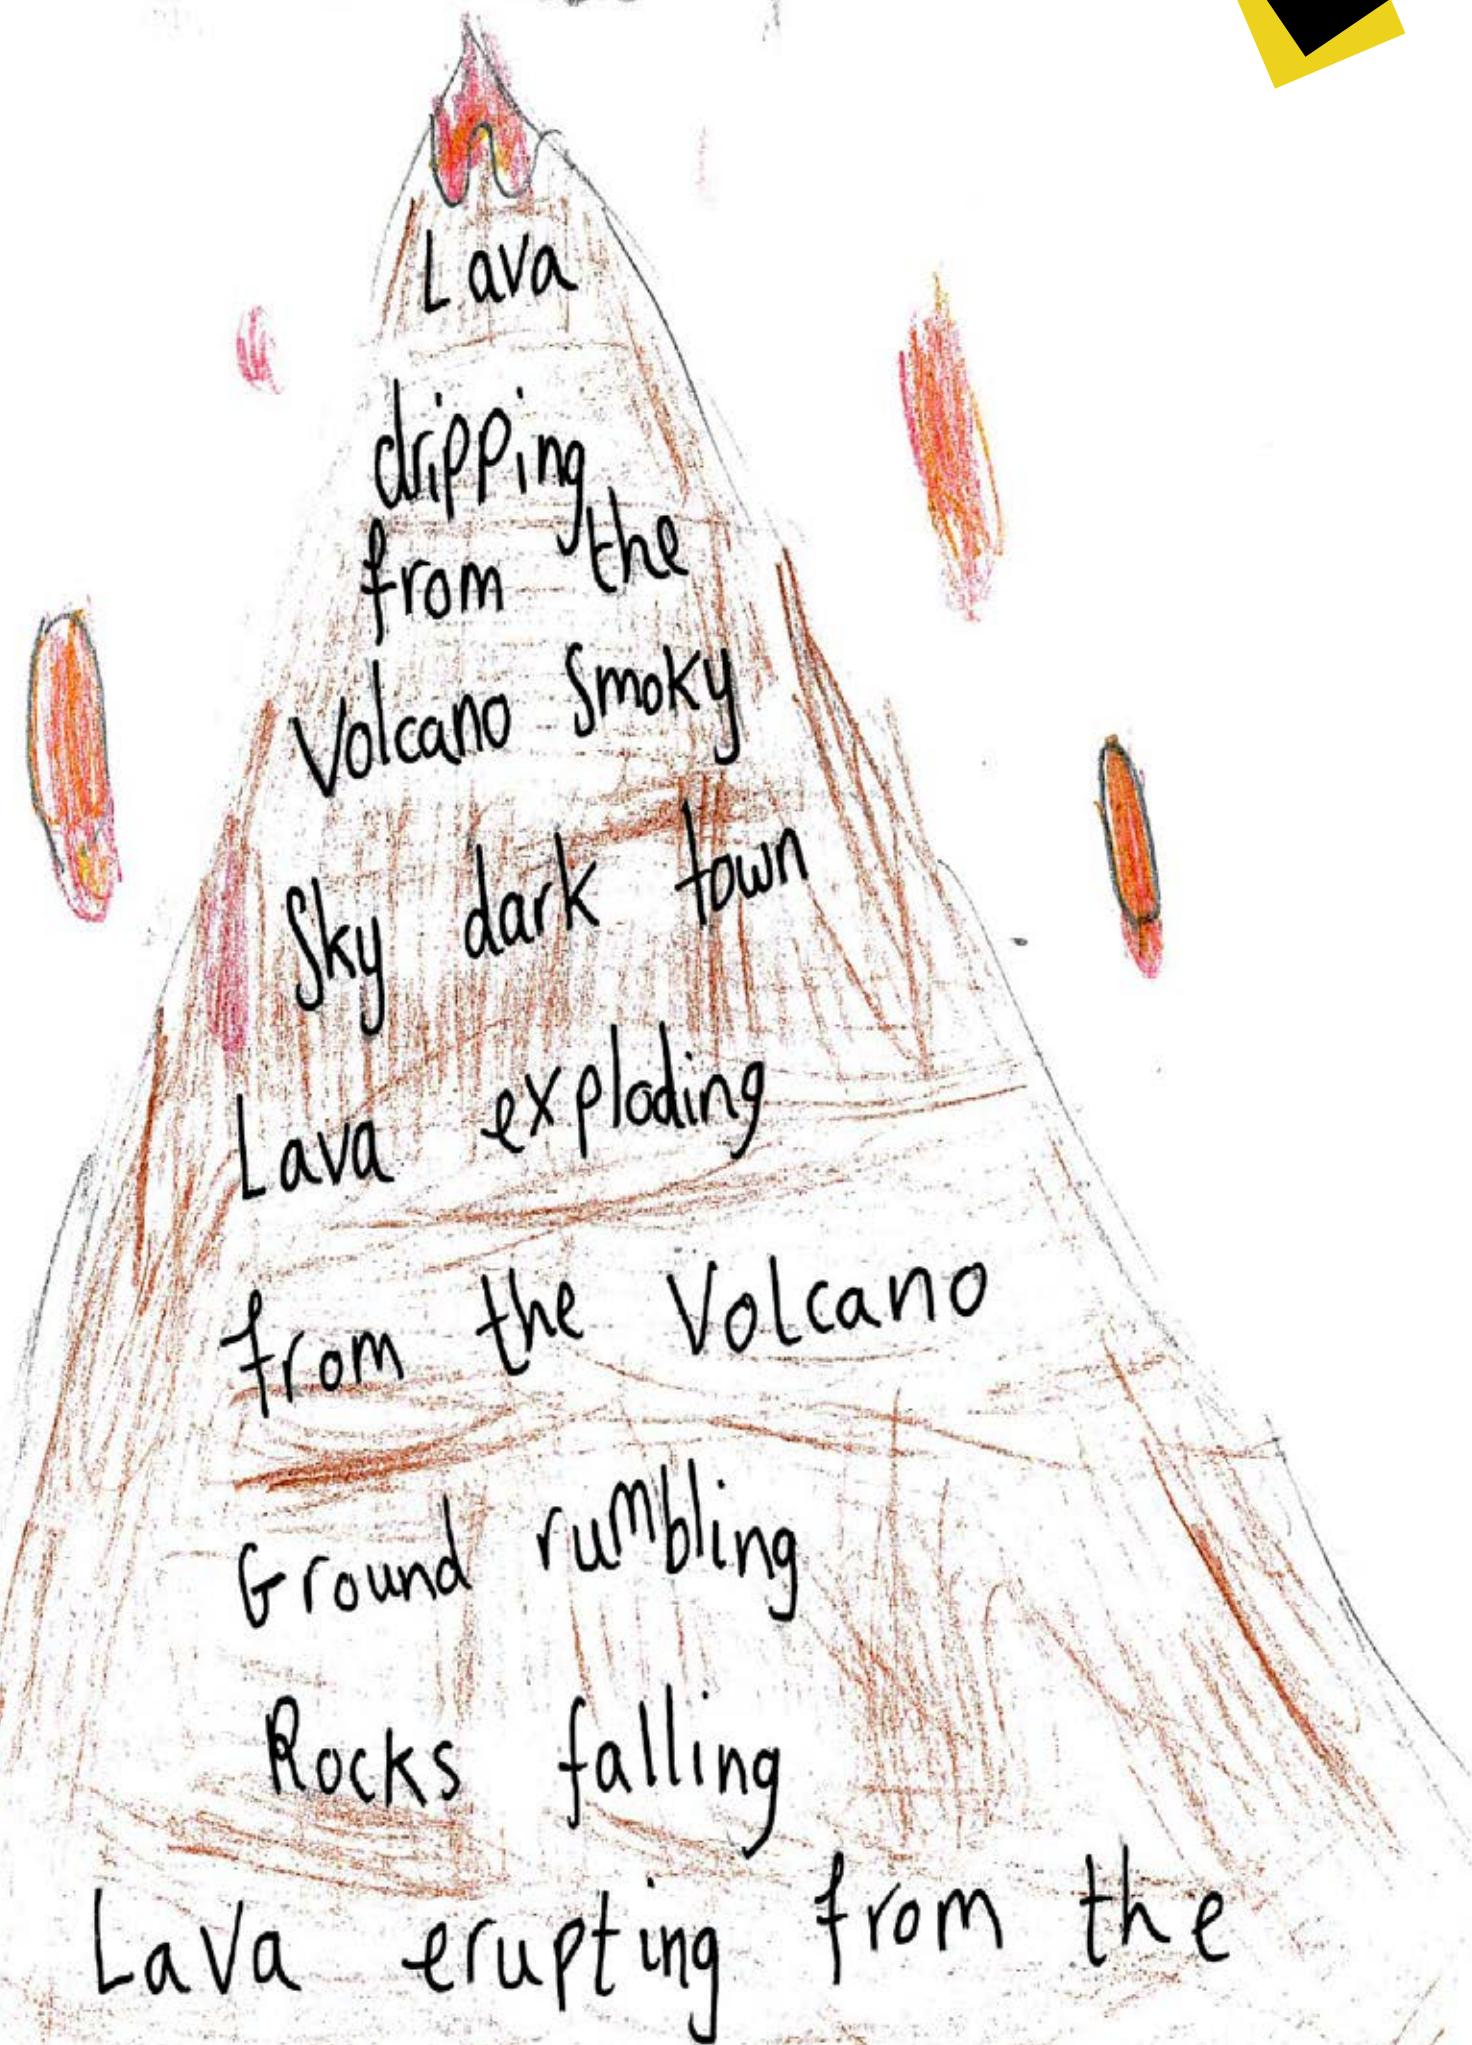 Lava
dripping
from the
Volcano Smoky
Sky dark town
Lava exploding
from the Volcano
Ground rumbling
Rocks falling
Lava erupting from the